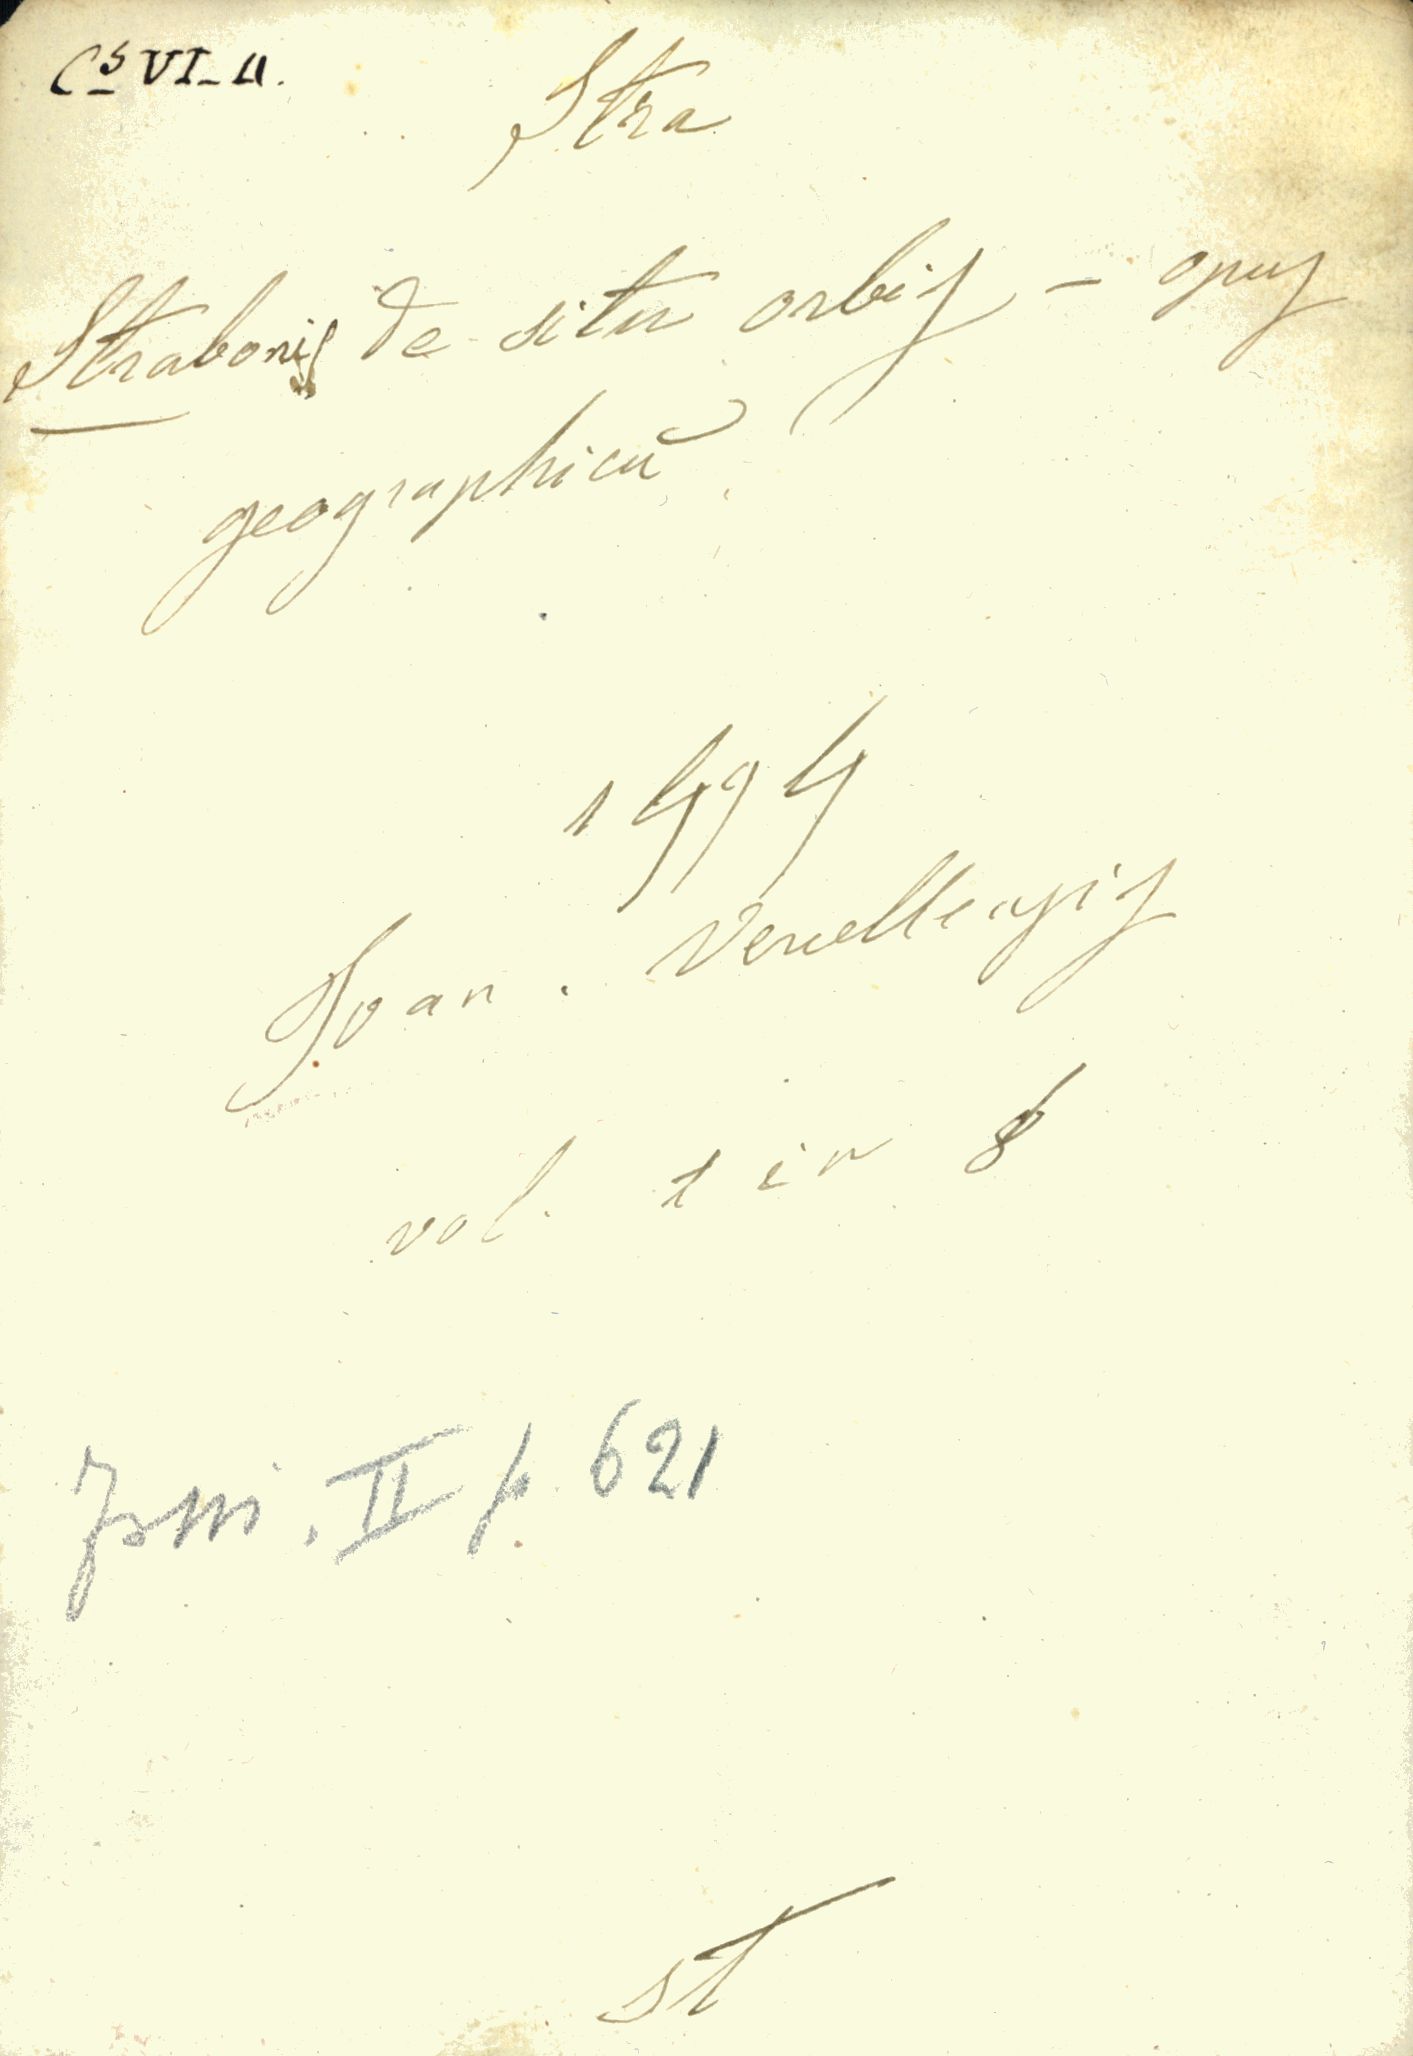 Cs VI-4.
Stra
Strabonis De situ orbis - opus
geographicū
1494
Joan. Vercellensis
vol. 1 in 8
II p. 621
st